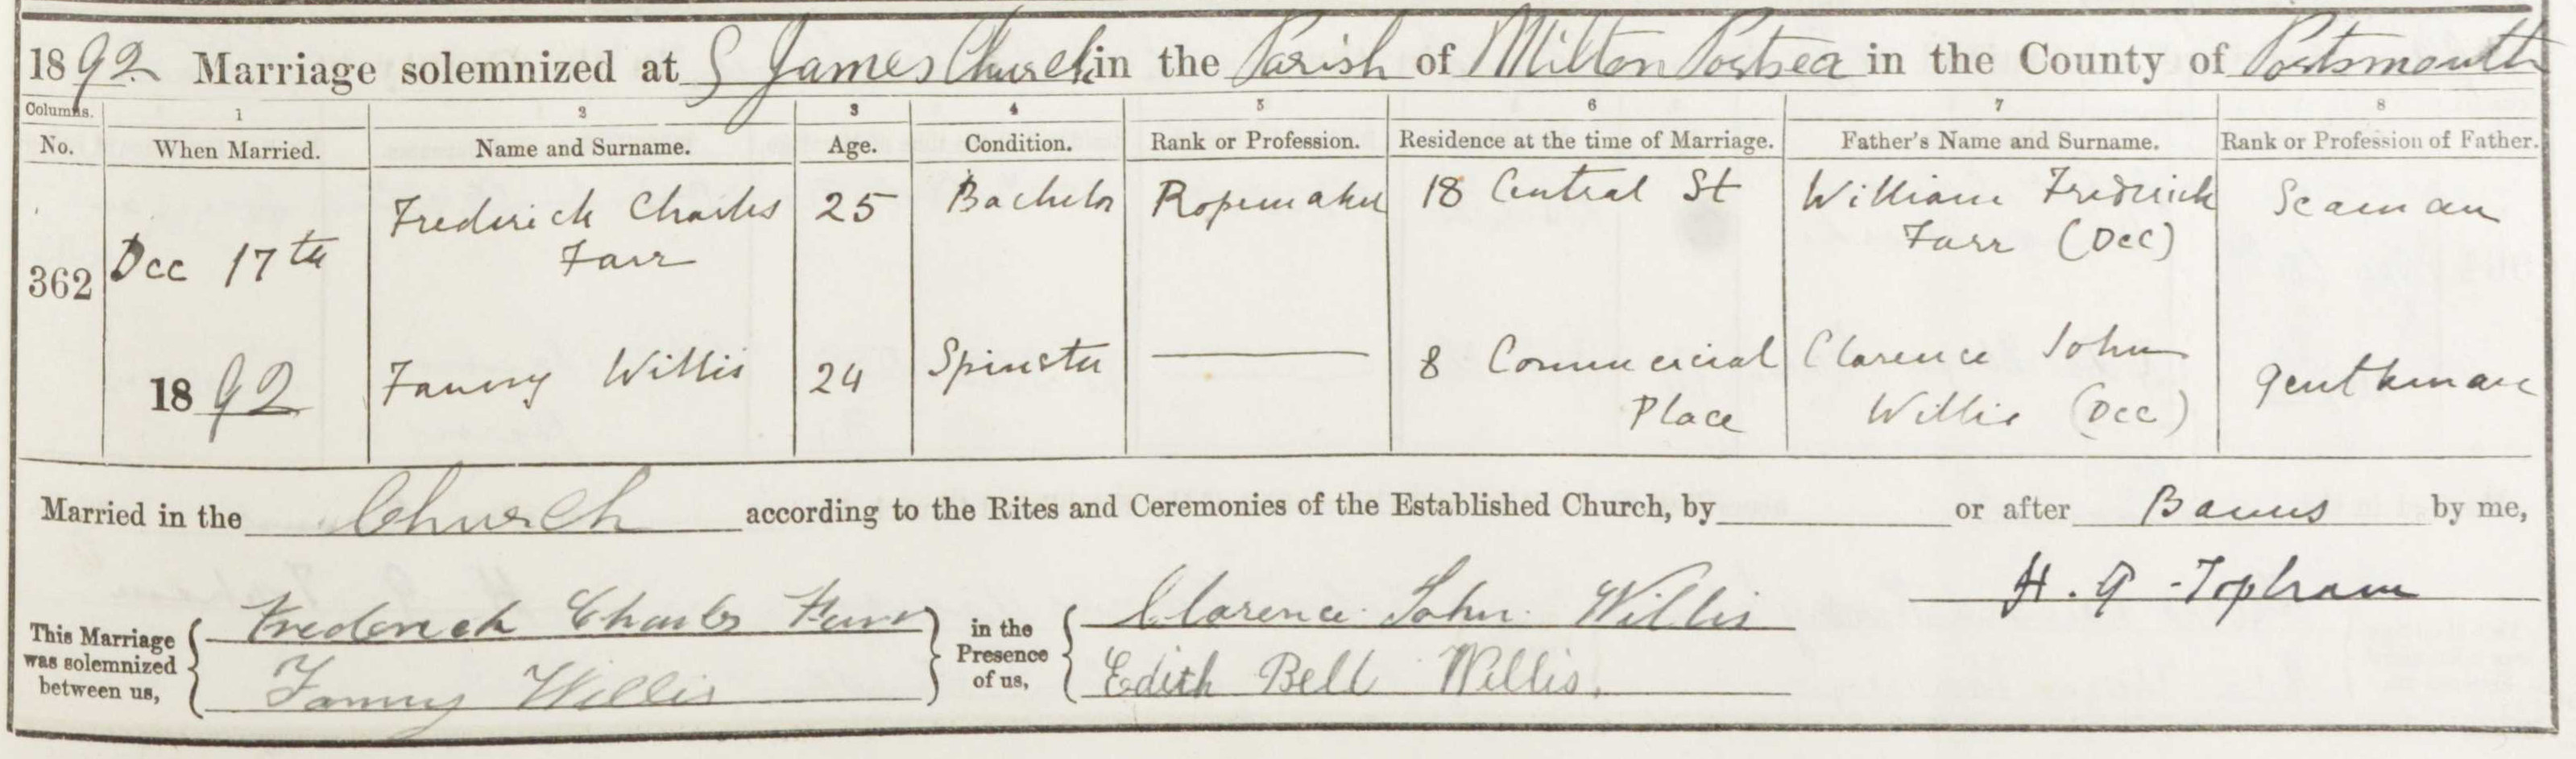 1892 Marriage solemnized at S James Church in the Parish of Milton Portsea in the County of Portsmouth
Columns. 1 2 3 4 5 6 7 8
No. When Married. Name and Surname. Age. Condition. Rank or Profession. Residence at the time of Marriage. Father's Name and Surname. Rank or Profession of Father.
362 Dec 17th Frederick Charles 25 Bachelor Ropemaker 18 Central St William Frederick Seaman
Farr Farr (Dec)
1892 Fanny Willis 24 Spinster 8 Commercial Clarence John Gentleman
Place Willis (Dec)
Married in the Church according to the Rites and Ceremonies of the Established Church, by or after Banns by me,
H. G. Topham
This Marriage was solemnized between us,
Frederick Charles Farr
Fanny Willis
in the Presence of us,
Clarence John Willis
Edith Bell Willis.